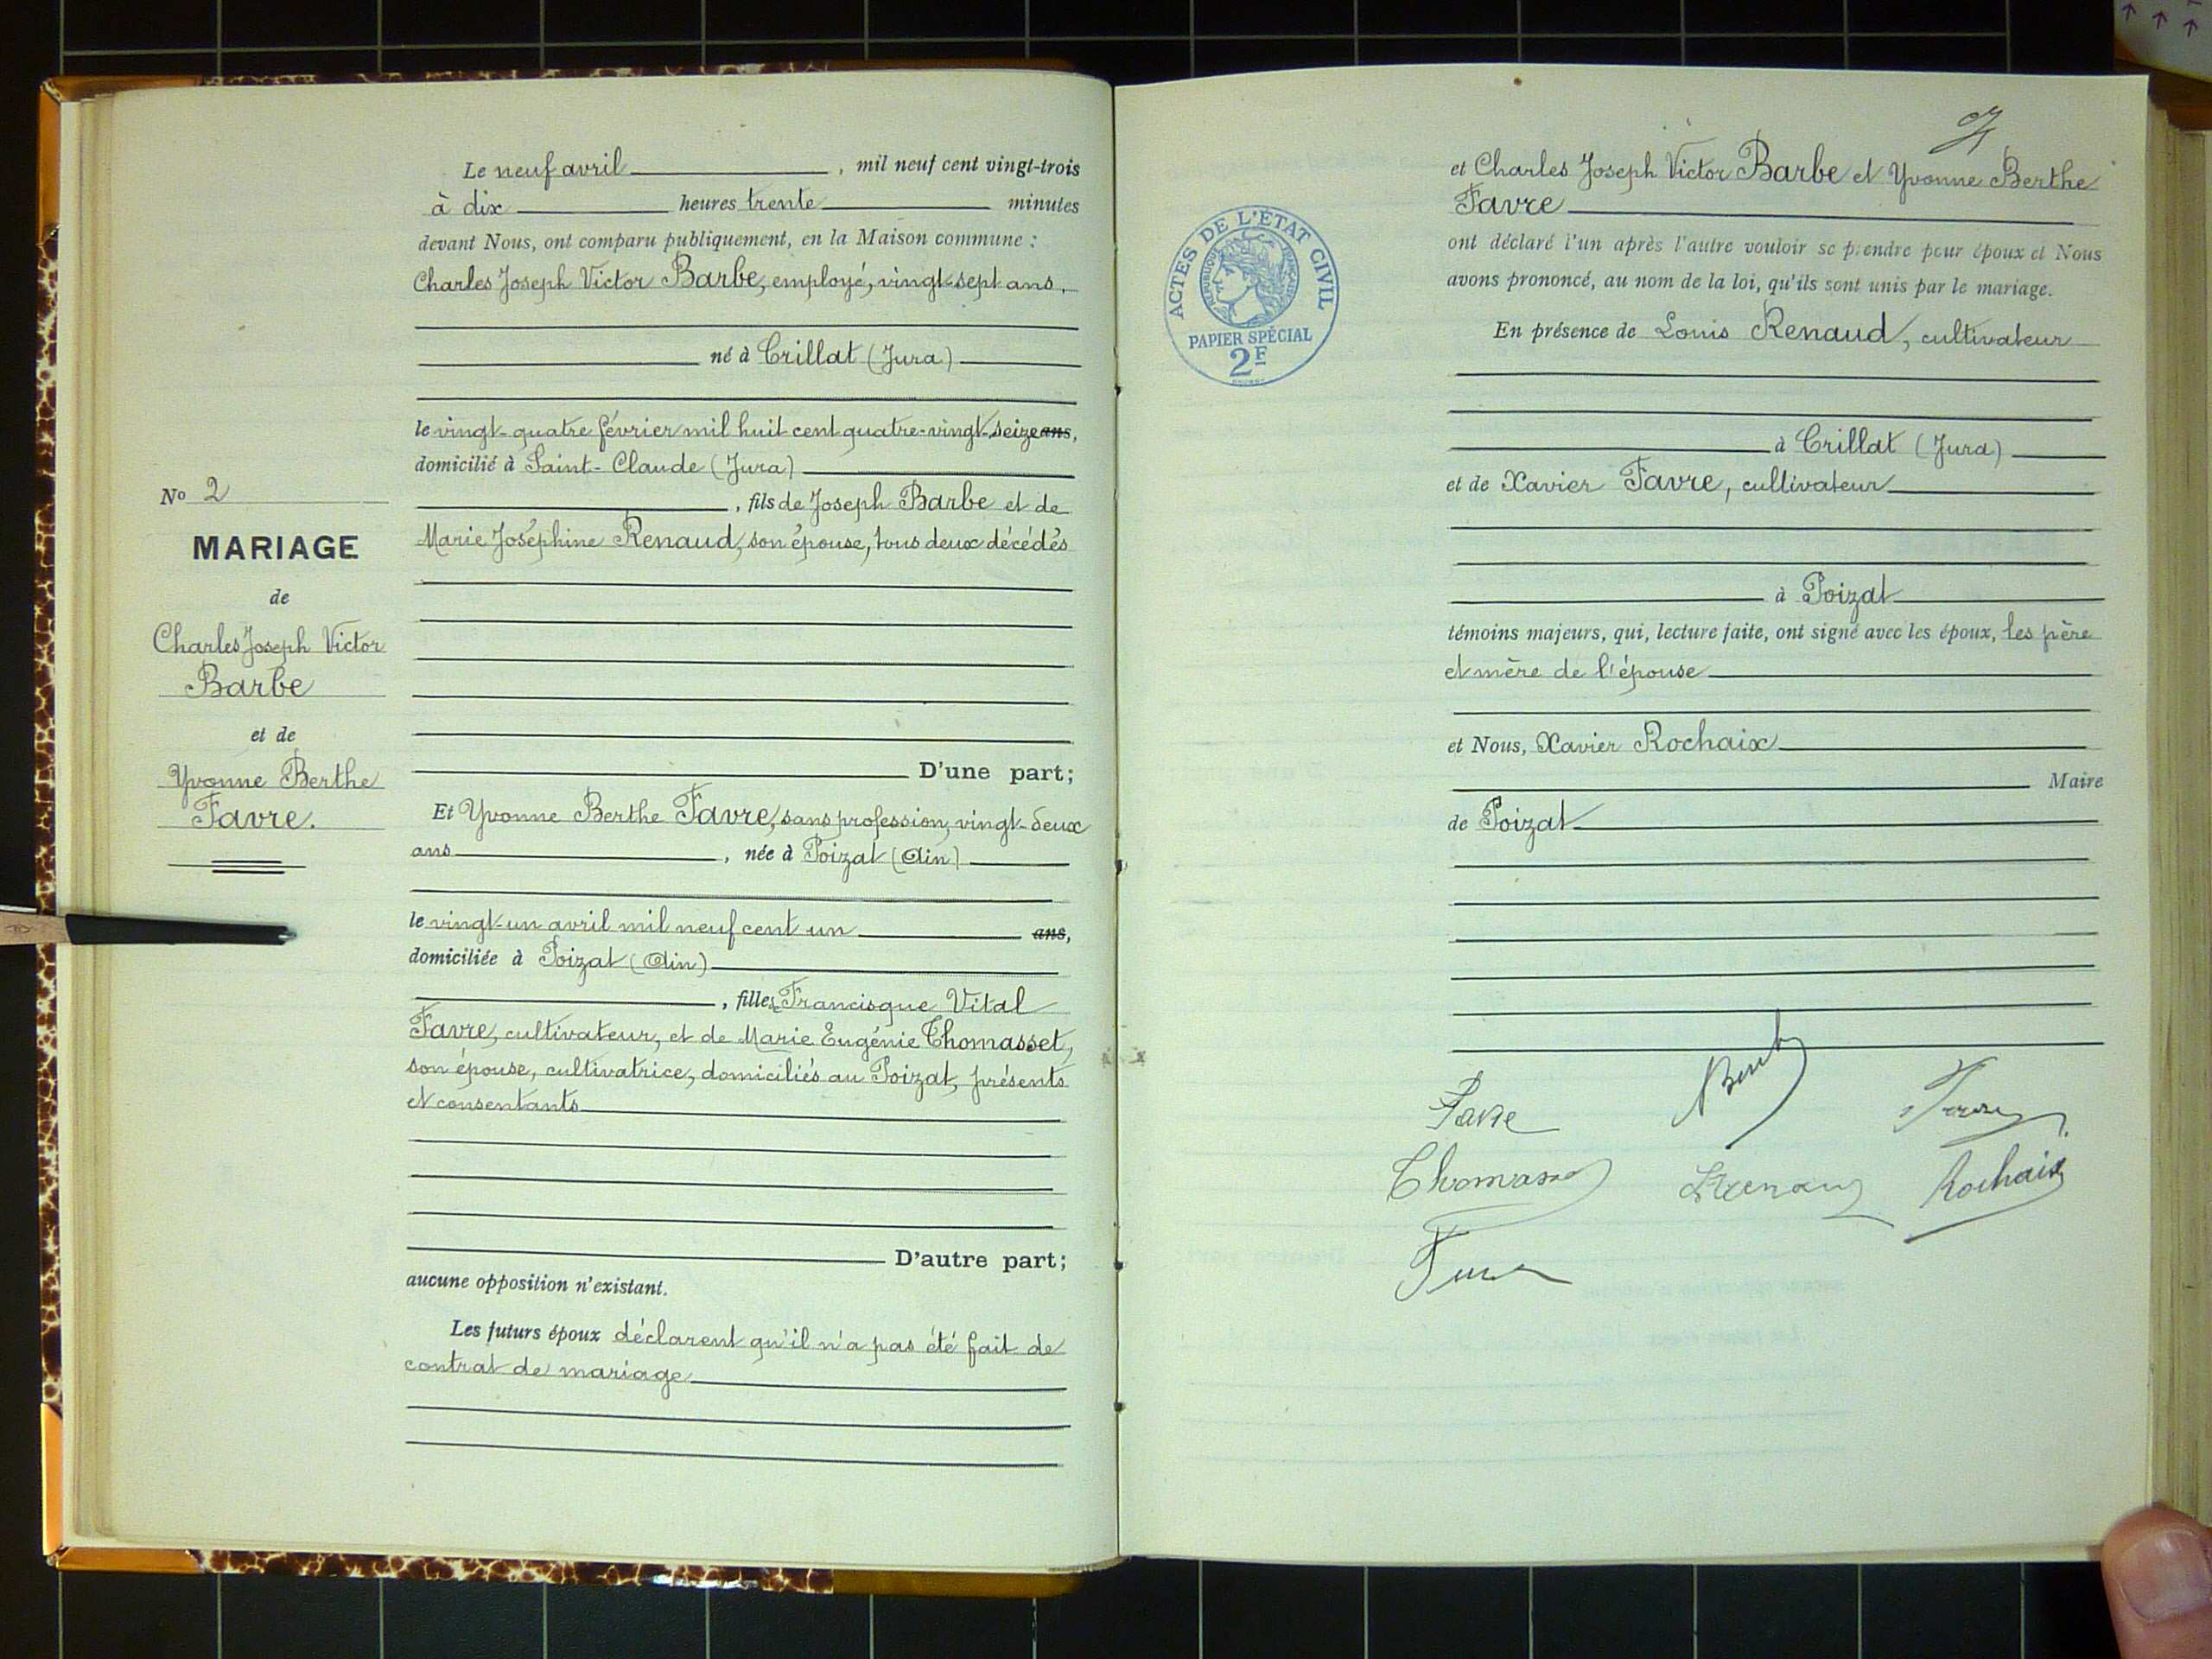 Le neuf avril, mil neuf cent vingt-trois
à dix heures trente minutes
devant Nous, ont comparu publiquement, en la Maison commune :
Charles Joseph Victor Barbe, employé, vingt-sept ans,
né à Crillat (Jura)
le vingt-quatre février mil huit cent quatre-vingt-seize ans,
domicilié à Saint-Claude (Jura)
, fils de Joseph Barbe et de
Marie Joséphine Renaud, son épouse, tous deux décédés
D'une part;
Et Yvonne Berthe Favre, sans profession, vingt-deux
ans, née à Poizat (Ain)
le vingt-un avril mil neuf cent un ans,
domiciliée à Poizat (Ain)
, fille de Francisque Vital
Favre, cultivateur, et de Marie Eugénie Thomasset,
son épouse, cultivatrice, domiciliés au Poizat, présents
et consentants
D'autre part;
aucune opposition n'existant.
Les futurs époux déclarent qu'il n'a pas été fait de
contrat de mariage
No 2
MARIAGE
de
Charles Joseph Victor
Barbe
et de
Yvonne Berthe
Favre.
et Charles Joseph Victor Barbe et Yvonne Berthe
Favre
ont déclaré l'un après l'autre vouloir se prendre pour époux et Nous
avons prononcé, au nom de la loi, qu'ils sont unis par le mariage.
En présence de Louis Renaud, cultivateur
à Crillat (Jura)
et de Xavier Favre, cultivateur
à Poizat
témoins majeurs, qui, lecture faite, ont signé avec les époux, les père
et mère de l'épouse
et Nous, Xavier Rochaix
Maire
de Poizat
ACTES DE L'ÉTAT CIVIL
RÉPUBLIQUE FRANÇAISE
PAPIER SPÉCIAL
2F
Favre
Barbe
Favre
Thomasset
L Renaud
Rochaix